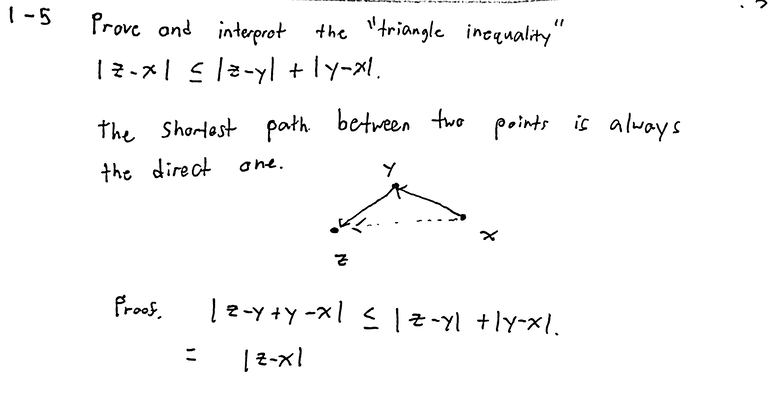 1-5 Prove and interpret the "triangle inequality"
|z-x| ≤ |z-y| + |y-x|.
the shortest path between two points is always
the direct one.
y
z
x
Proof. |z-y+y-x| ≤ |z-y| + |y-x|.
= |z-x|